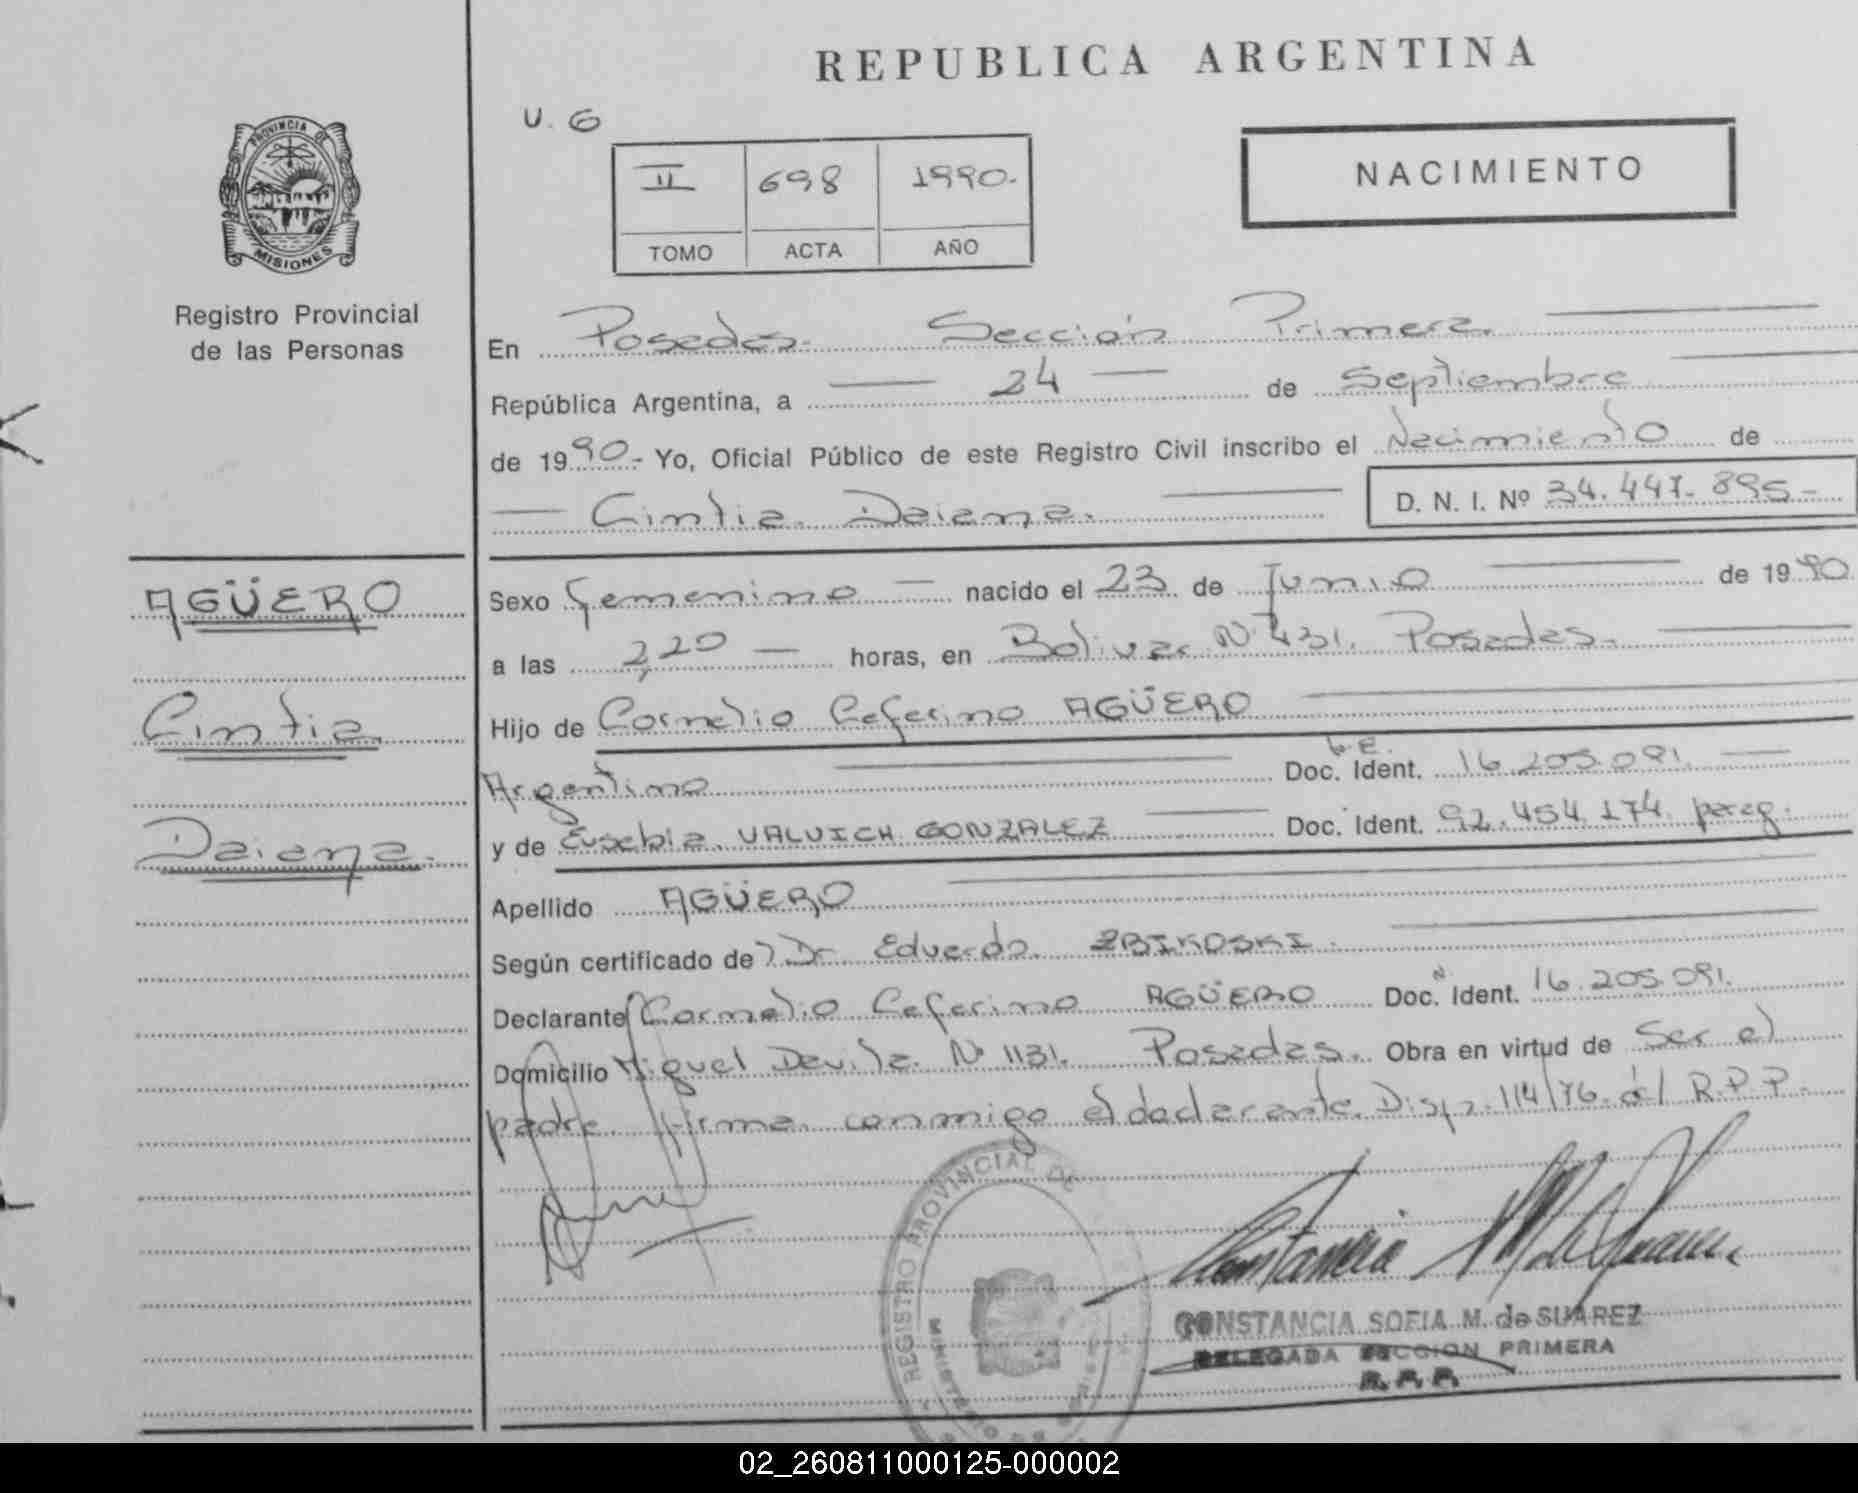 REPUBLICA ARGENTINA
U. G
NACIMIENTO
II 698 1990.
TOMO ACTA AÑO
PROVINCIA DE
MISIONES
Registro Provincial
de las Personas
En Posadas. Sección Primera.
República Argentina, a 24 de Septiembre
de 1990.- Yo, Oficial Público de este Registro Civil inscribo el Nacimiento de
Cintia Daiana. D. N. I. Nº 34.447.895-
AGÜERO
Cintia
Daiana.
Sexo femenino nacido el 23 de Junio de 1990
a las 2,20 horas, en Bolivar Nº 431. Posadas.
Hijo de Cornelio Ceferino AGÜERO
Argentino Doc. Ident. 16.205.091.
y de Eusebia VALVICH GONZALEZ Doc. Ident. 92.454.174. parag.
Apellido AGÜERO
Según certificado de Dr Eduardo ZBIKOSKI.
Declarante Cornelio Ceferino AGÜERO Doc. Ident. 16.205.091.
Domicilio Miguel Davila Nº 1131. Posadas. Obra en virtud de Ser el
padre. Firma conmigo el declarante. Disp. 114/76. d/ R.P.P.
REGISTRO PROVINCIAL DE
MINISTERIO DE
CONSTANCIA SOFIA M. de SUAREZ
DELEGADA SECCION PRIMERA
R. P. P.
02_260811000125-000002